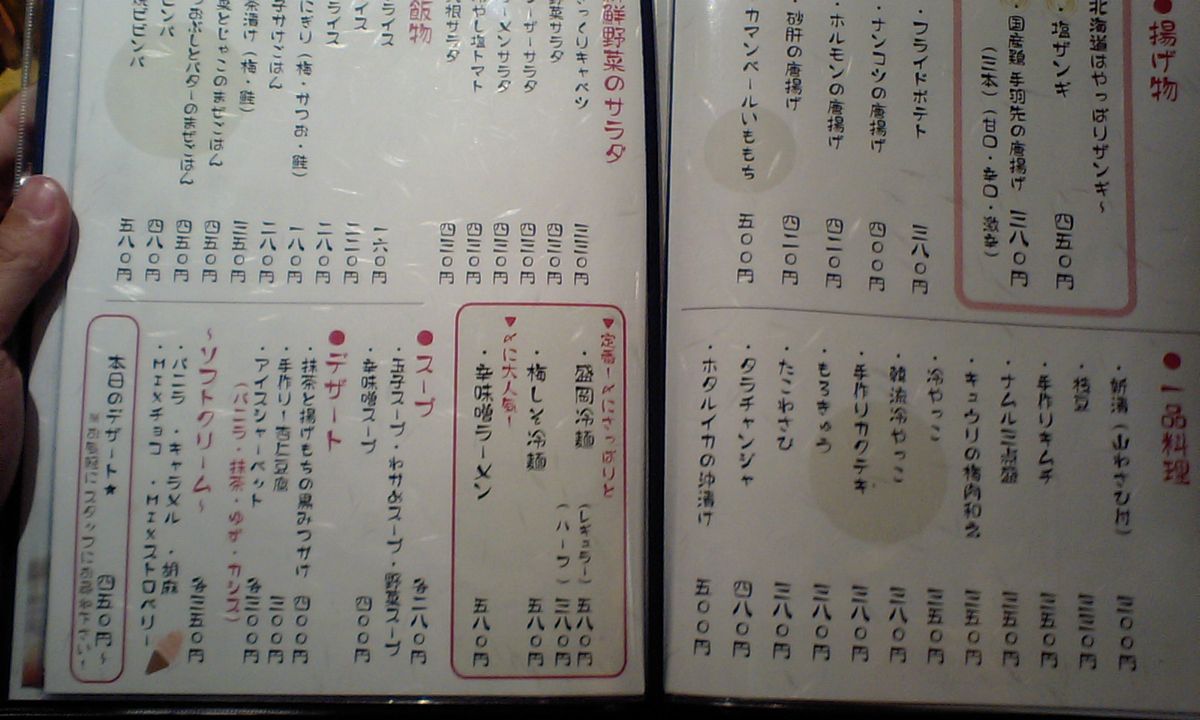 ●揚げ物
北海道はやっぱりザンギ～
・塩ザンギ 四五〇円
・国産鶏 手羽先の唐揚げ 三八〇円
(三本)(甘口・辛口・激辛)
・フライドポテト 三八〇円
・ナンコツの唐揚げ 四〇〇円
・ホルモンの唐揚げ 四二〇円
・砂肝の唐揚げ 四二〇円
・カマンベールいももち 五〇〇円
●一品料理
・新漬(山わさび付) 三〇〇円
・枝豆 三三〇円
・手作りキムチ 三五〇円
・ナムル三点盛 三五〇円
・キュウリの梅肉和え 三五〇円
・冷やっこ 三五〇円
・韓流冷やっこ 三八〇円
・手作りカクテキ 三八〇円
・もろきゅう 三八〇円
・たこわさび 三八〇円
・タラチャンジャ 四八〇円
・ホタルイカの沖漬け 五〇〇円
鮮野菜のサラダ
っくりキャベツ 三三〇円
野菜サラダ 四三〇円
ーザーサラダ 四三〇円
ーメンサラダ 四三〇円
やし塩トマト 四三〇円
根サラダ 四三〇円
飯物
ライス 一六〇円
イス 二二〇円
ライス 二八〇円
にぎり(梅・かつお・鮭) 一八〇円
子かけごはん 二八〇円
茶漬け(梅・鮭) 三五〇円
菜とじゃこのまぜごはん 四五〇円
つおぶしとバターのまぜごはん 四五〇円
ビンバ 四八〇円
焼ビビンバ 五八〇円
▼定番!〆にさっぱりと
・盛岡冷麺 (レギュラー) 五八〇円
(ハーフ) 三八〇円
・梅しそ冷麺 五八〇円
▼〆に大人気!
・辛味噌ラーメン 五八〇円
●スープ
・玉子スープ・わかめスープ・野菜スープ 各二八〇円
・辛味噌スープ 四〇〇円
●デザート
・抹茶と揚げもちの黒みつがけ 四〇〇円
・手作り!杏仁豆腐 三〇〇円
・アイスシャーベット 各三〇〇円
(バニラ・抹茶・ゆず・カシス)
～ソフトクリーム～ 各三五〇円
・バニラ ・キャラメル ・胡麻
・MIXチョコ ・MIXストロベリー
本日のデザート★ 四五〇円～
※お気軽にスタッフにお尋ね下さい!